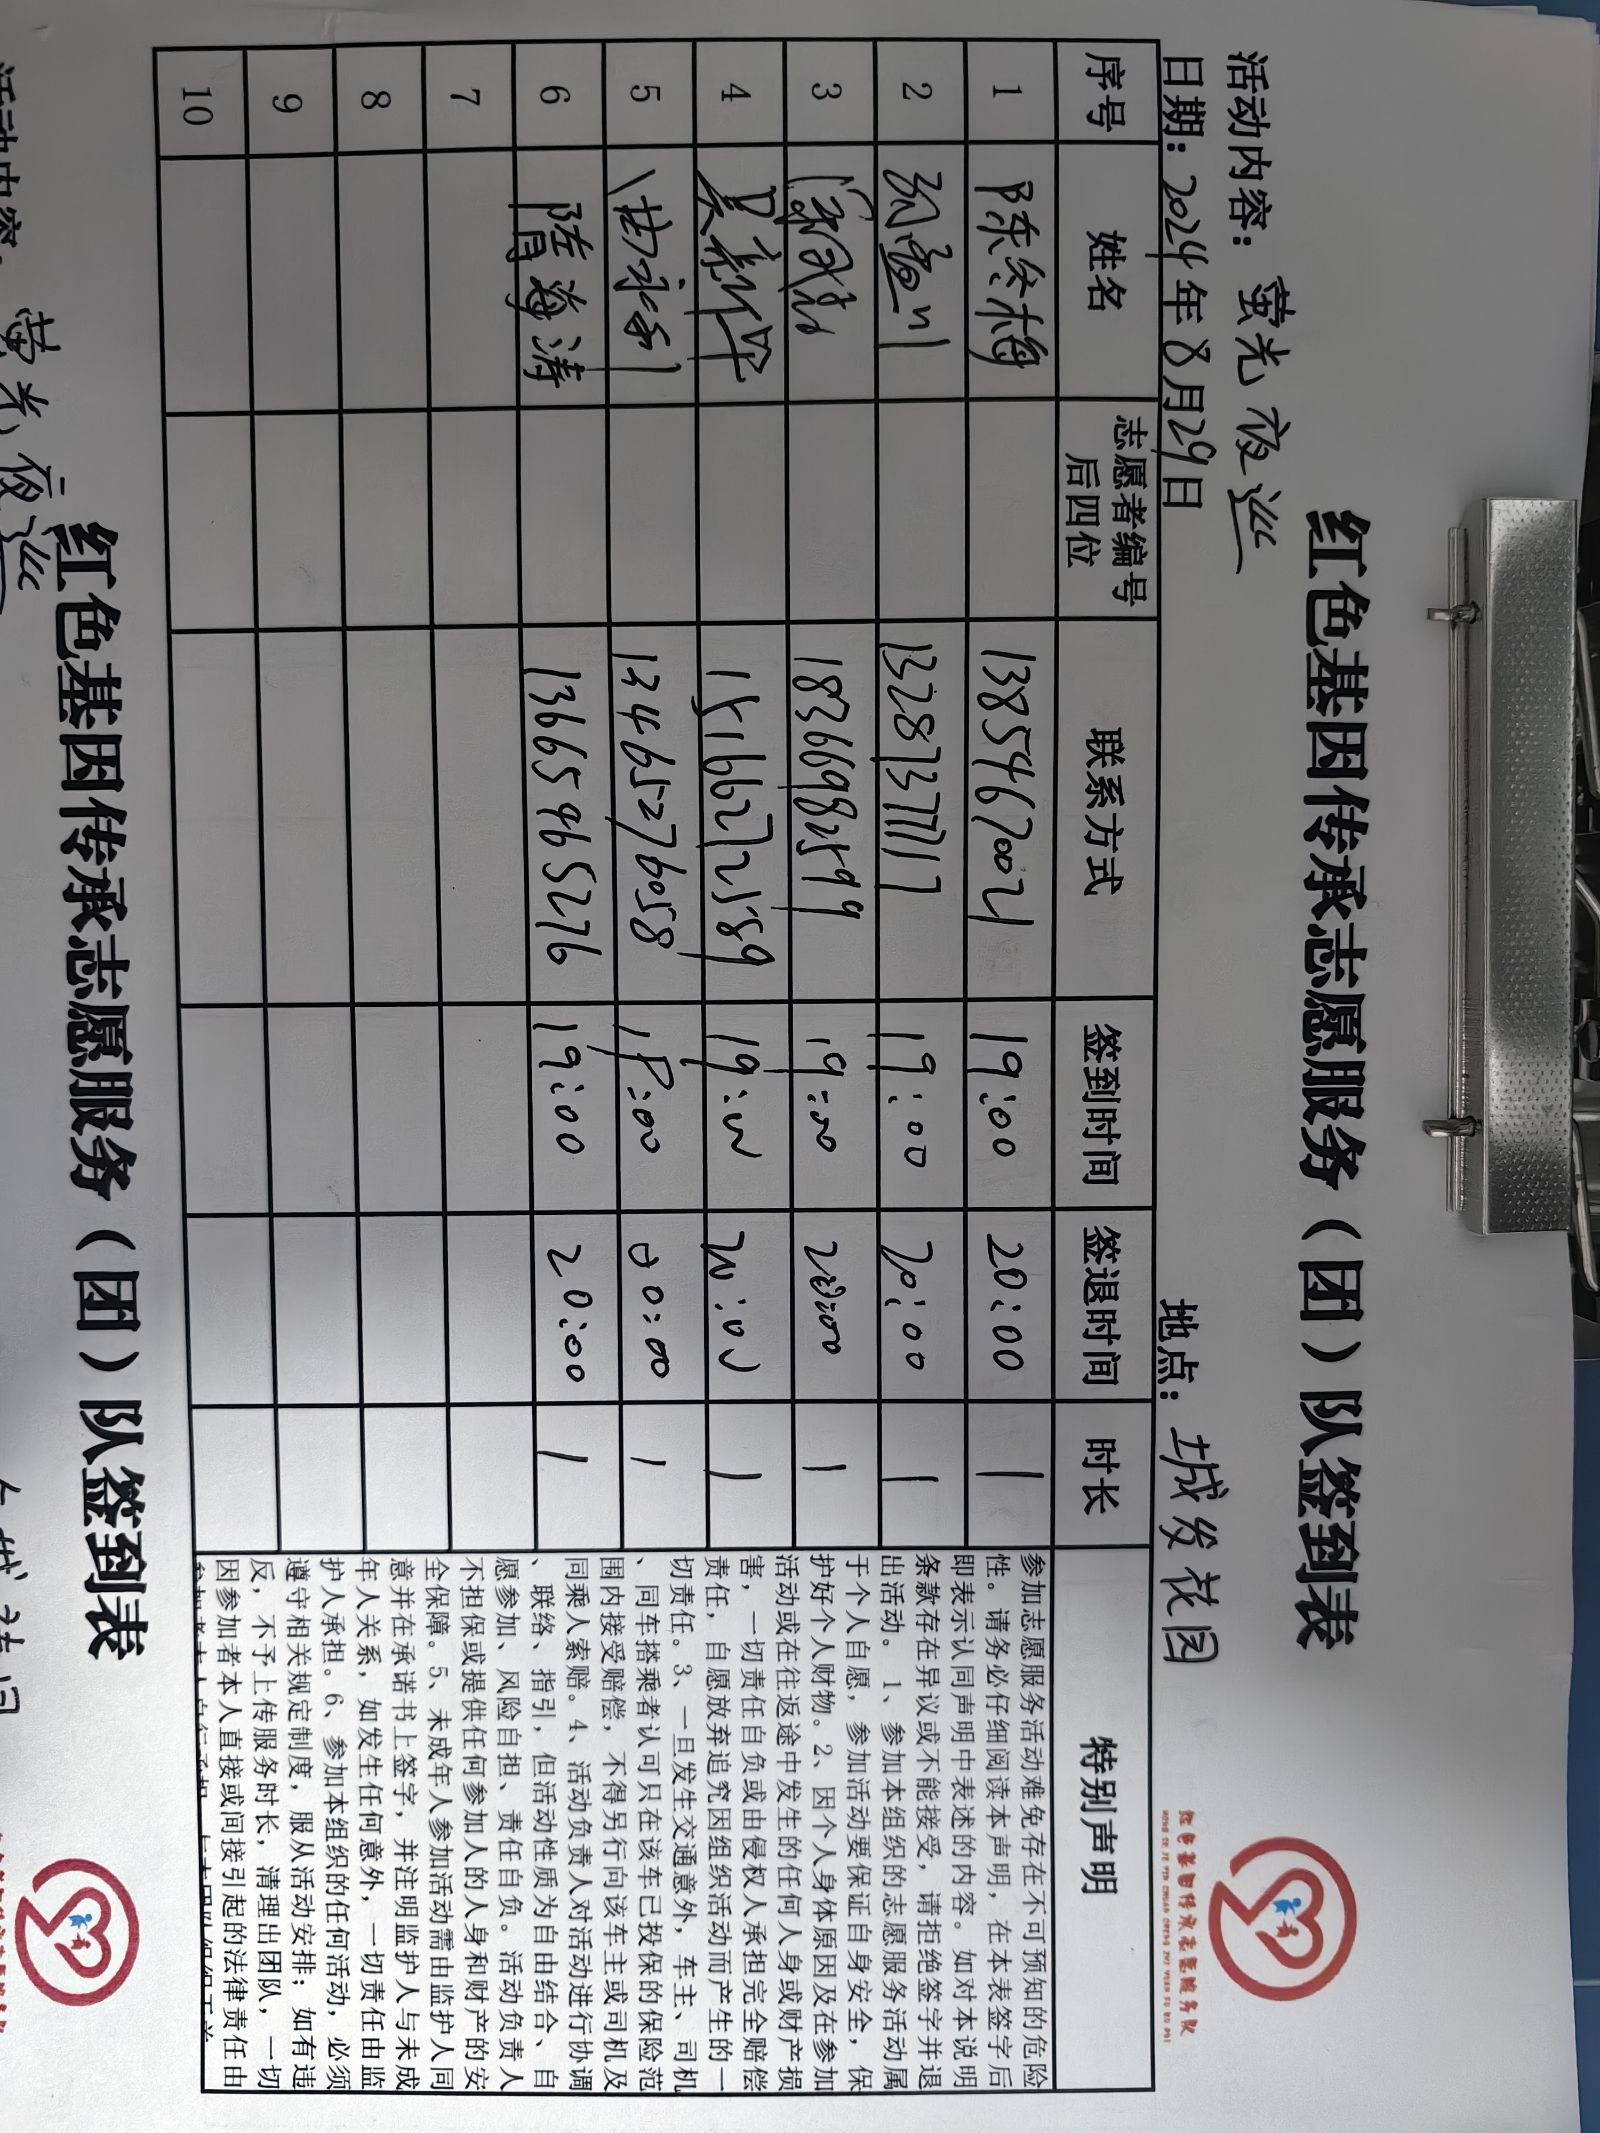 红色基因传承志愿服务（团）队签到表
活动内容：萤光夜巡
日期：2024年8月29日 地点：城发花园
序号 姓名 志愿者编号后四位 联系方式 签到时间 签退时间 时长 特别声明
1 陈冬梅 13854670021 19:00 20:00 1
2 13287371717 19:00 20:00 1
3 18366982599 19:00 20:00 1
4 吴新华 15166272589 19:00 20:00 1
5 曲永利 13465276058 19:00 20:00 1
6 陆海涛 13665465276 19:00 20:00 1
7
8
9
10
参加志愿服务活动难免存在不可预知的危险
性。请务必仔细阅读本声明，在本表签字后
即表示认同声明中表述的内容。如对本说明
条款存在异议或不能接受，请拒绝签字并退
出活动。1、参加本组织的志愿服务活动属
于个人自愿，参加活动要保证自身安全，保
护好个人财物。2、因个人身体原因及在参加
活动或在往返途中发生的任何人身或财产损
害，一切责任自负或由侵权人承担完全赔偿
责任，自愿放弃追究因组织活动而产生的一
切责任。3、一旦发生交通意外，车主、司机
、同车搭乘者认可只在该车已投保的保险范
围内接受赔偿，不得另行向该车主或司机及
同乘人索赔。4、活动负责人对活动进行协调
、联络、指引，但活动性质为自由结合、自
愿参加、风险自担、责任自负。活动负责人
不担保或提供任何参加人的人身和财产的安
全保障。5、未成年人参加活动需由监护人同
意并在承诺书上签字，并注明监护人与未成
年人关系，如发生任何意外，一切责任由监
护人承担。6、参加本组织的任何活动，必须
遵守相关规定制度，服从活动安排；如有违
反，不予上传服务时长，清理出团队，一切
因参加者本人直接或间接引起的法律责任由
红色基因传承志愿服务队
HONG SE JI YIN CHUAN CHENG ZHI YUAN FU WU DUI
红色基因传承志愿服务（团）队签到表
萤光夜巡